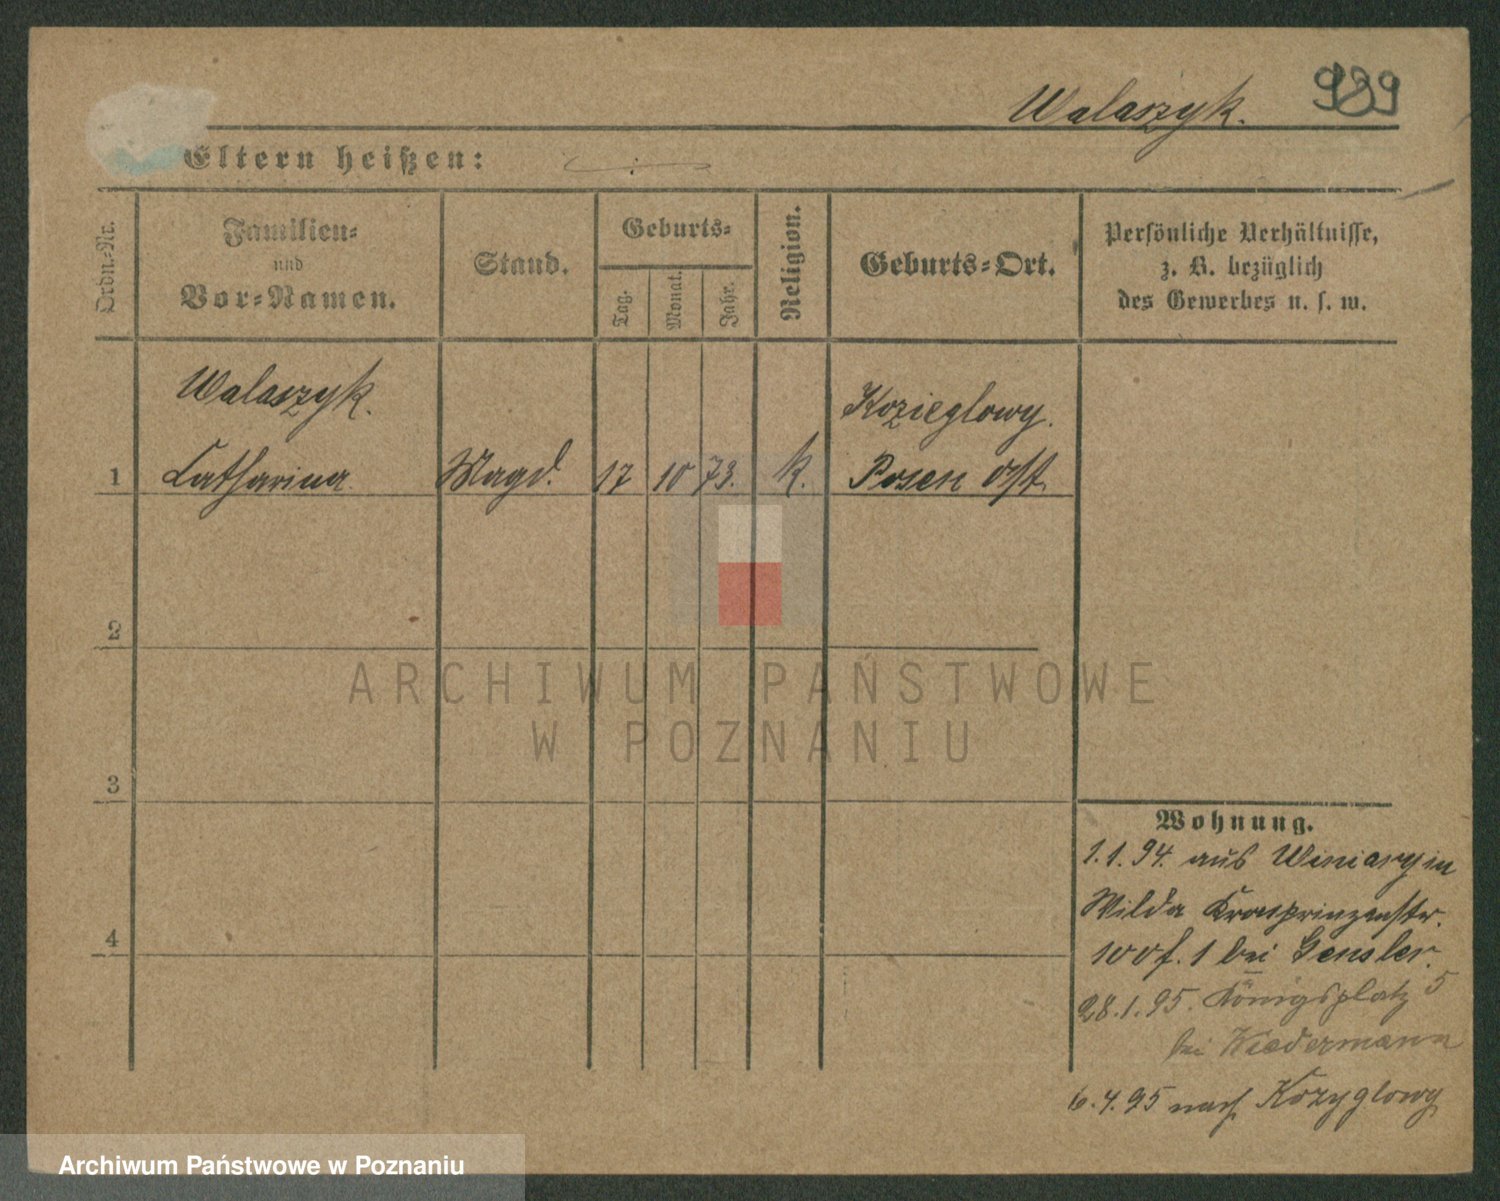 989
Walaszyk.
Eltern heißen:
Ordn.-Nr.
Familien-
und
Vor-Namen.
Stand.
Geburts-
Tag.
Monat.
Jahr.
Religion.
Geburts-Ort.
Persönliche Verhältnisse,
z. B. bezüglich
des Gewerbes u. s. w.
Walaszyk.
Kozieglowy.
1 Catharina Magd. 17 10 73. k. Posen Ost.
2
3
4
Wohnung.
1.1.94. aus Winiary in
Wilda Kronprinzenstr.
100f. 1 bei Gensler.
28.1.95. Königsplatz 5
bei Wiedermann
6.4.95 nach Kozyglowy
ARCHIWUM PAŃSTWOWE
W POZNANIU
Archiwum Państwowe w Poznaniu